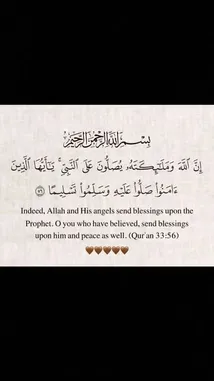 بِسْمِ اللَّهِ الرَّحْمَٰنِ الرَّحِيمِ
إِنَّ اللَّهَ وَمَلَٰٓئِكَتَهُۥ يُصَلُّونَ عَلَى النَّبِيِّ ۚ يَٰٓأَيُّهَا الَّذِينَ
ءَامَنُوا۟ صَلُّوا۟ عَلَيْهِ وَسَلِّمُوا۟ تَسْلِيمًا ﴿٥٦﴾
Indeed, Allah and His angels send blessings upon the
Prophet. O you who have believed, send blessings
upon him and peace as well. (Qur'an 33:56)
🤎🤎🤎🤎🤎